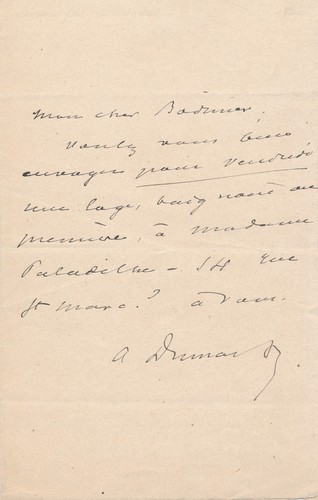 Mon cher Bodinier,
Voulez vous bien
envoyer pour vendredi
une loge, baignoire ou
première, à Madame
Paladilhe - 14 Rue
St Marc. ? à vous.
A Dumas